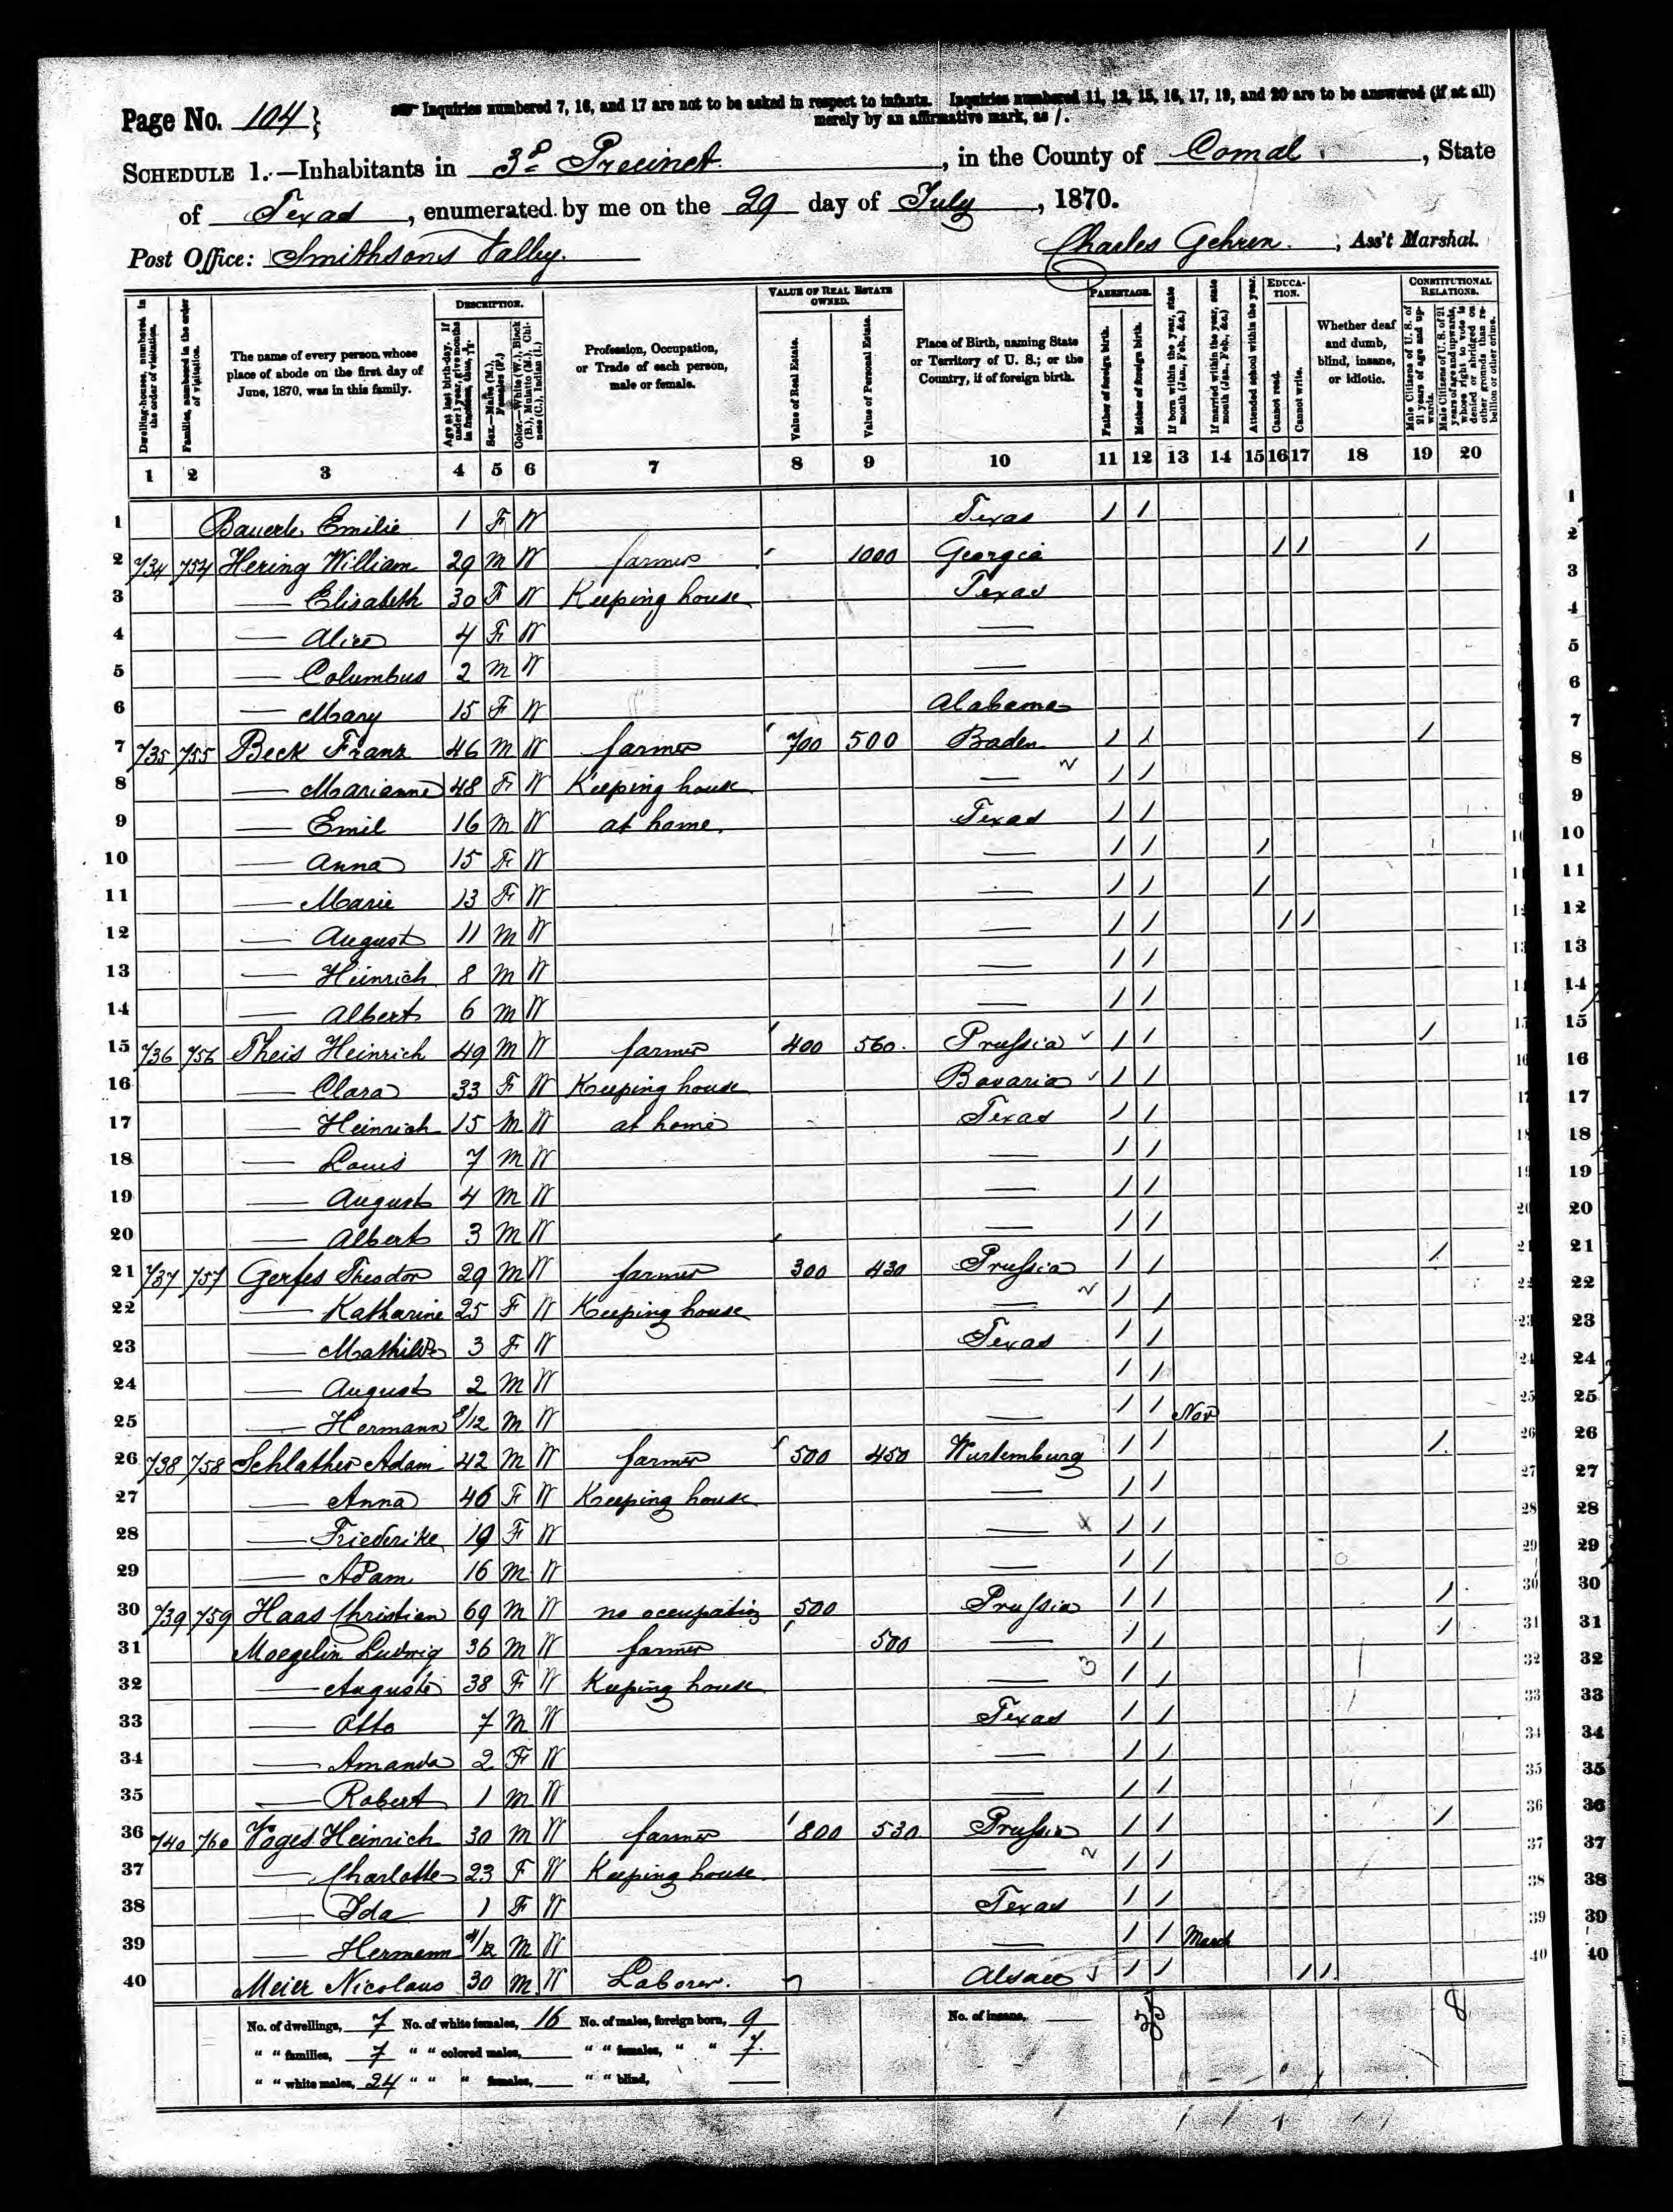 Page No. 104
Inquiries numbered 7, 16, and 17 are not to be asked in respect to infants. Inquiries numbered 11, 12, 15, 16, 17, 19, and 20 are to be answered (if at all)
merely by an affirmative mark, as /.
SCHEDULE 1.—Inhabitants in 3d Precinct, in the County of Comal, State
of Texas, enumerated by me on the 29 day of July, 1870.
Post Office: Smithsons Valley. Charles Gehren, Ass't Marshal.
Dwelling-houses, numbered in the order of visitation.
Families, numbered in the order of visitation.
The name of every person whose place of abode on the first day of June, 1870, was in this family.
DESCRIPTION.
Age at last birth-day. If under 1 year, give months in fractions, thus,
Sex.—Males (M.), Females (F.)
Color.—White (W.), Black (B.), Mulatto (M.), Chinese (C.), Indian (I.)
Profession, Occupation, or Trade of each person, male or female.
VALUE OF REAL ESTATE OWNED.
Value of Real Estate.
Value of Personal Estate.
Place of Birth, naming State or Territory of U. S.; or the Country, if of foreign birth.
PARENTAGE.
Father of foreign birth.
Mother of foreign birth.
If born within the year, state month (Jan., Feb., &c.)
If married within the year, state month (Jan., Feb., &c.)
Attended school within the year.
EDUCATION.
Cannot read.
Cannot write.
Whether deaf and dumb, blind, insane, or idiotic.
CONSTITUTIONAL RELATIONS.
Male Citizens of U. S. of 21 years of age and upwards.
Male Citizens of U. S. of 21 years of age and upwards, whose right to vote is denied or abridged on other grounds than rebellion or other crime.
1 2 3 4 5 6 7 8 9 10 11 12 13 14 15 16 17 18 19 20
1 Bauerle Emilie 1 F W Texas / / 1
2 734 754 Hering William 29 M W farmer 1000 Georgia / / / 2
3 — Elisabeth 30 F W Keeping house Texas 3
4 — Alice 4 F W — 4
5 — Columbus 2 M W — 5
6 — Mary 15 F W Alabama 6
7 735 755 Beck Franz 46 M W farmer 700 500 Baden / / / 7
8 — Marianne 48 F W Keeping house — / / 8
9 — Emil 16 M W at home. Texas / / 9
10 — Anna 15 F W — / / / 10
11 — Marie 13 F W — / / / 11
12 — August 11 M W — / / / / 12
13 — Heinrich 8 M W — / / 13
14 — Albert 6 M W — / / 14
15 736 756 Theis Heinrich 49 M W farmer 400 560. Prussia / / / 15
16 — Clara 33 F W Keeping house Bavaria / / 16
17 — Heinrich 15 M W at home Texas / / 17
18 — Louis 7 M W — / / 18
19 — August 4 M W — / / 19
20 — Albert 3 M W — / / 20
21 737 757 Gerfes Theodor 29 M W farmer 300 430 Prussia / / / 21
22 — Katharine 25 F W Keeping house — / / 22
23 — Mathilde 3 F W Texas / / 23
24 — August 2 M W / / 24
25 — Hermann 8/12 M W — / / Nov 25
26 738 758 Schlather Adam 42 M W farmer 500 450 Wurtemburg / / / 26
27 — Anna 46 F W Keeping house — / / 27
28 — Friederike 19 F W — / / 28
29 — Adam 16 M W — / / 29
30 739 759 Haas Christian 69 M W no occupation 500 Prussia / / / 30
31 Moegelin Ludwig 36 M W farmer 500 — / / / 31
32 — Auguste 38 F W Keeping house — 3 / / 32
33 — Otto 7 M W Texas / / 33
34 — Amanda 2 F W — / / 34
35 — Robert 1 M W — / / 35
36 740 760 Voges Heinrich 30 M W farmer 800 530 Prussia / / / 36
37 — Charlotte 23 F W Keeping house — / / 37
38 — Ida 1 F W Texas / / 38
39 — Hermann 4/12 M W — / / March 39
40 Meier Nicolaus 30 M W Laborer. Alsace / / / / 40
No. of dwellings, 7 No. of white females, 16 No. of males, foreign born, 9 No. of insane, 35 8
" " families, 7 " " colored males, " " females, " " 7.
" " white males, 24 " " " females, " " blind,